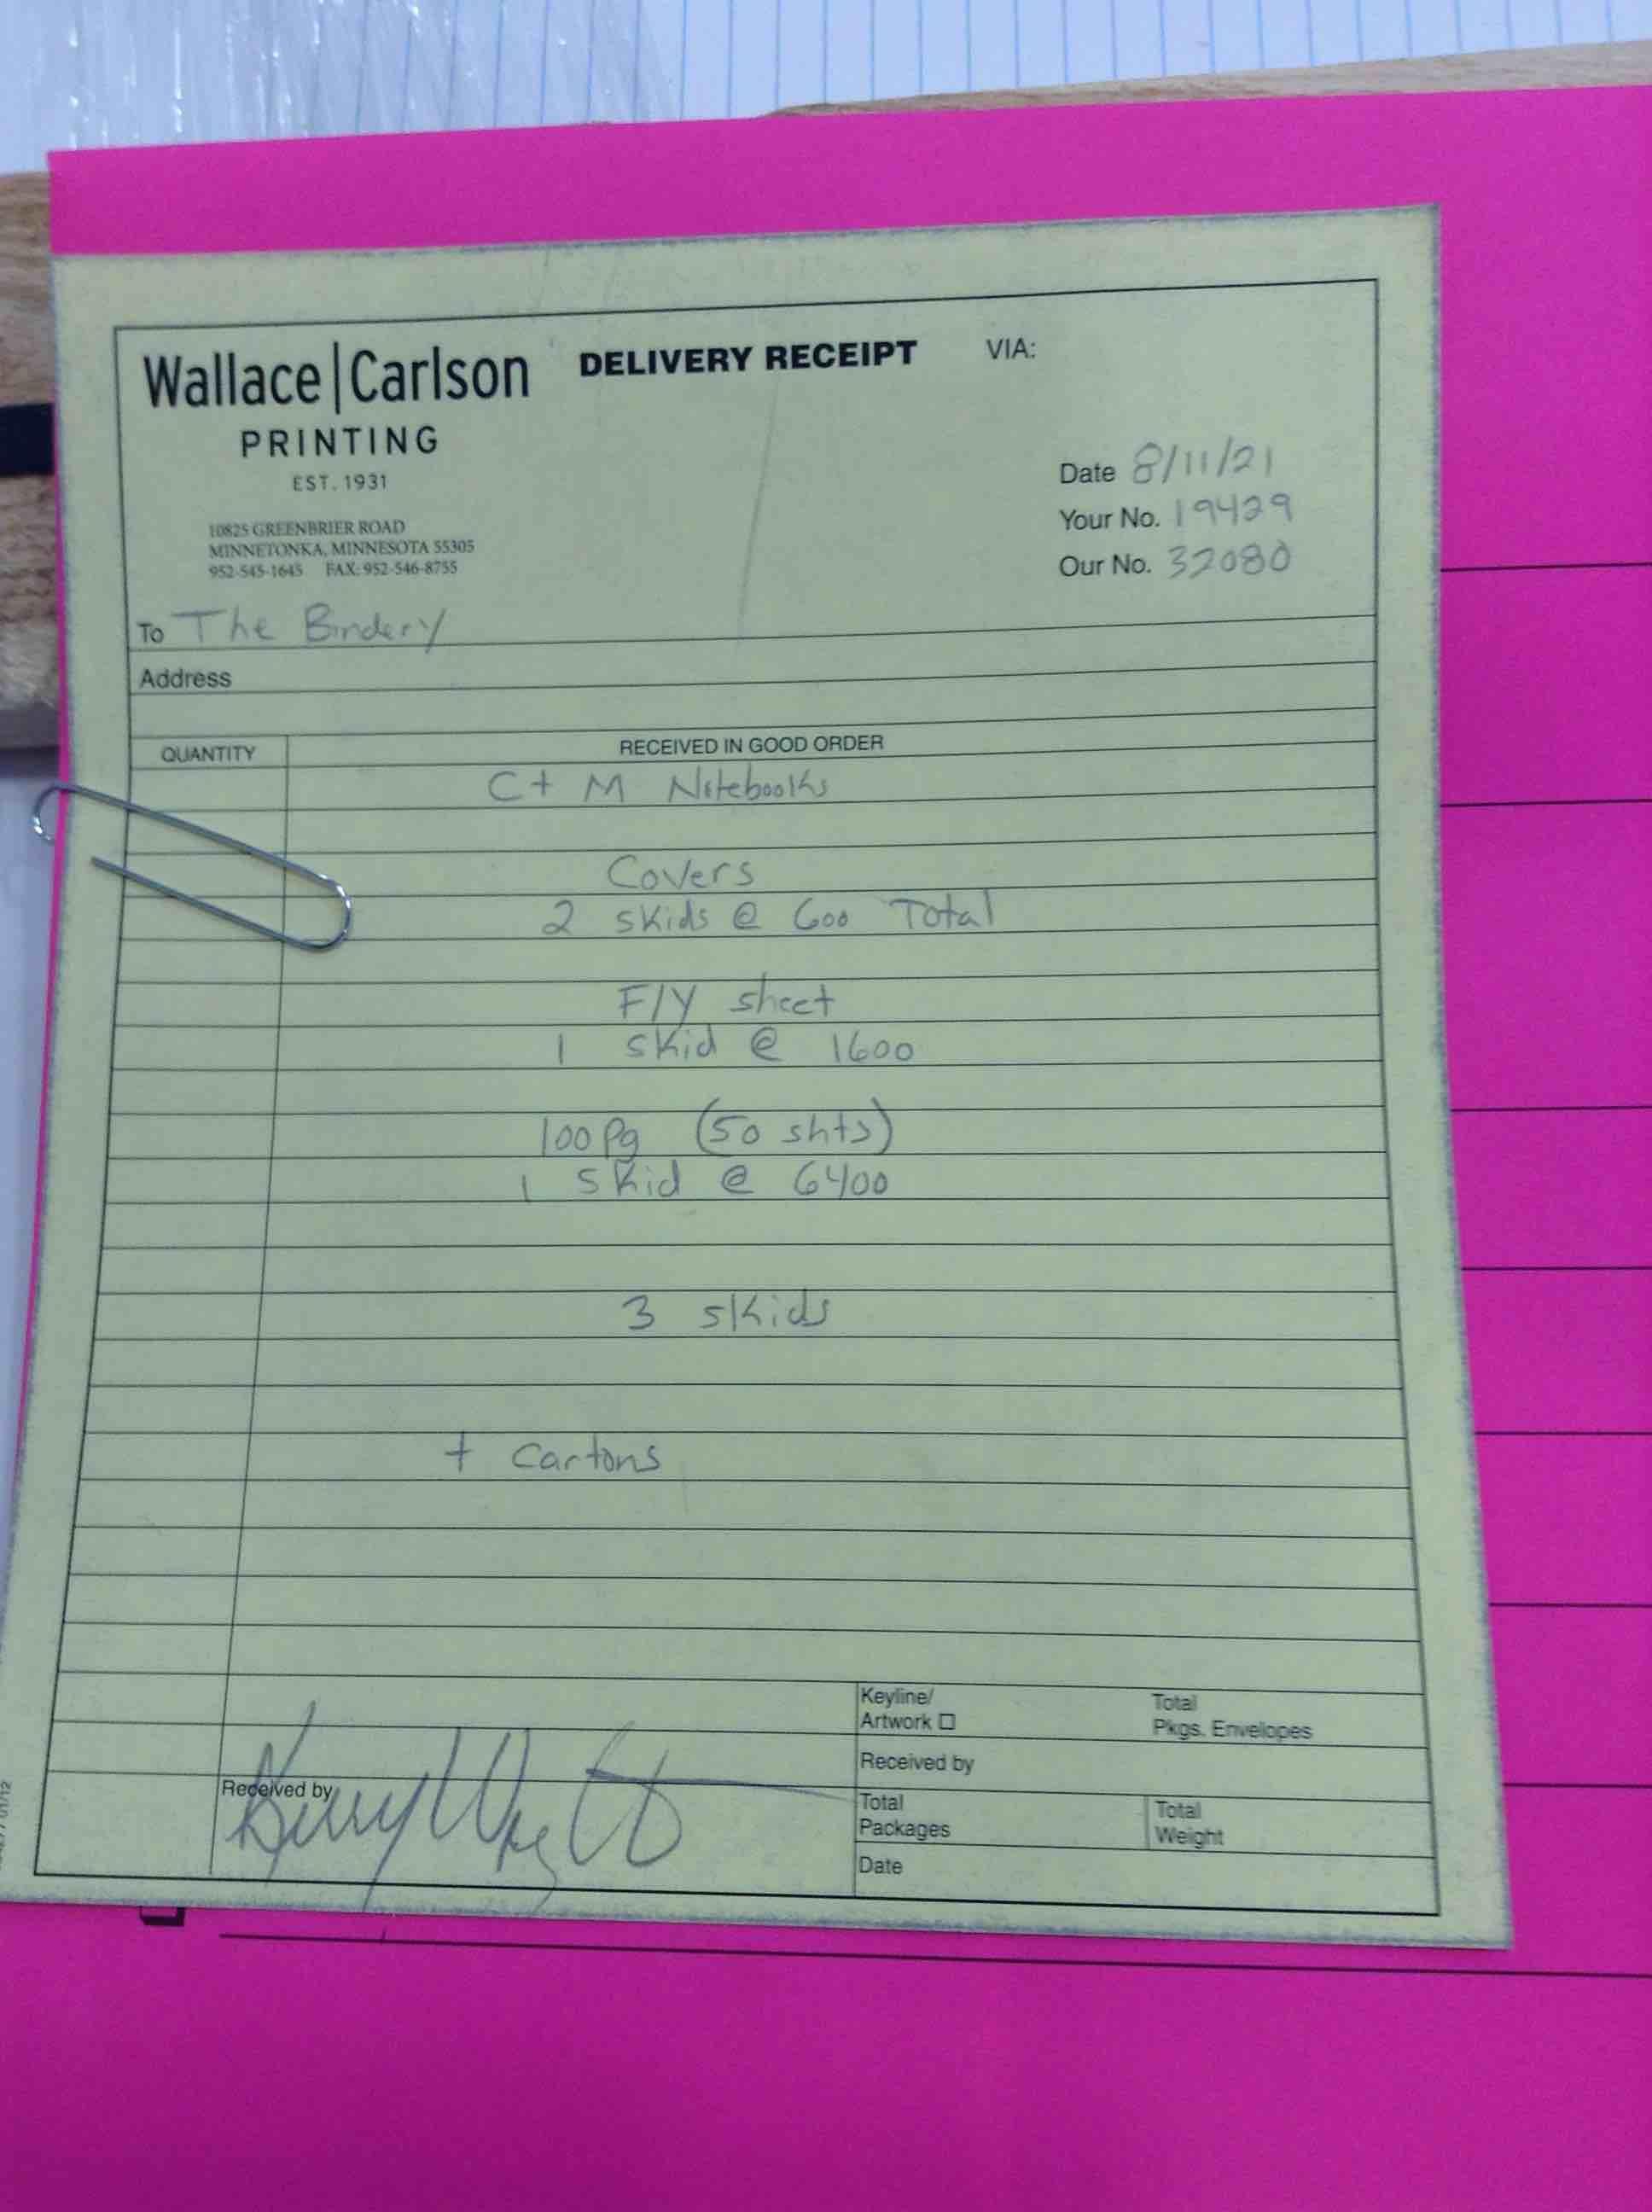 Wallace|Carlson
PRINTING
EST. 1931
10825 GREENBRIER ROAD
MINNETONKA, MINNESOTA 55305
952-545-1645 FAX: 952-546-8755
DELIVERY RECEIPT
VIA:
Date 8/11/21
Your No. 19429
Our No. 32080
To The Bindery
Address
QUANTITY RECEIVED IN GOOD ORDER
C + M Notebooks
Covers
2 skids @ 600 Total
Fly sheet
1 skid @ 1600
100 Pg (50 shts)
1 skid @ 6400
3 skids
+ Cartons
Received by
Keyline/
Artwork ☐
Total
Pkgs. Envelopes
Received by
Total
Packages
Total
Weight
Date